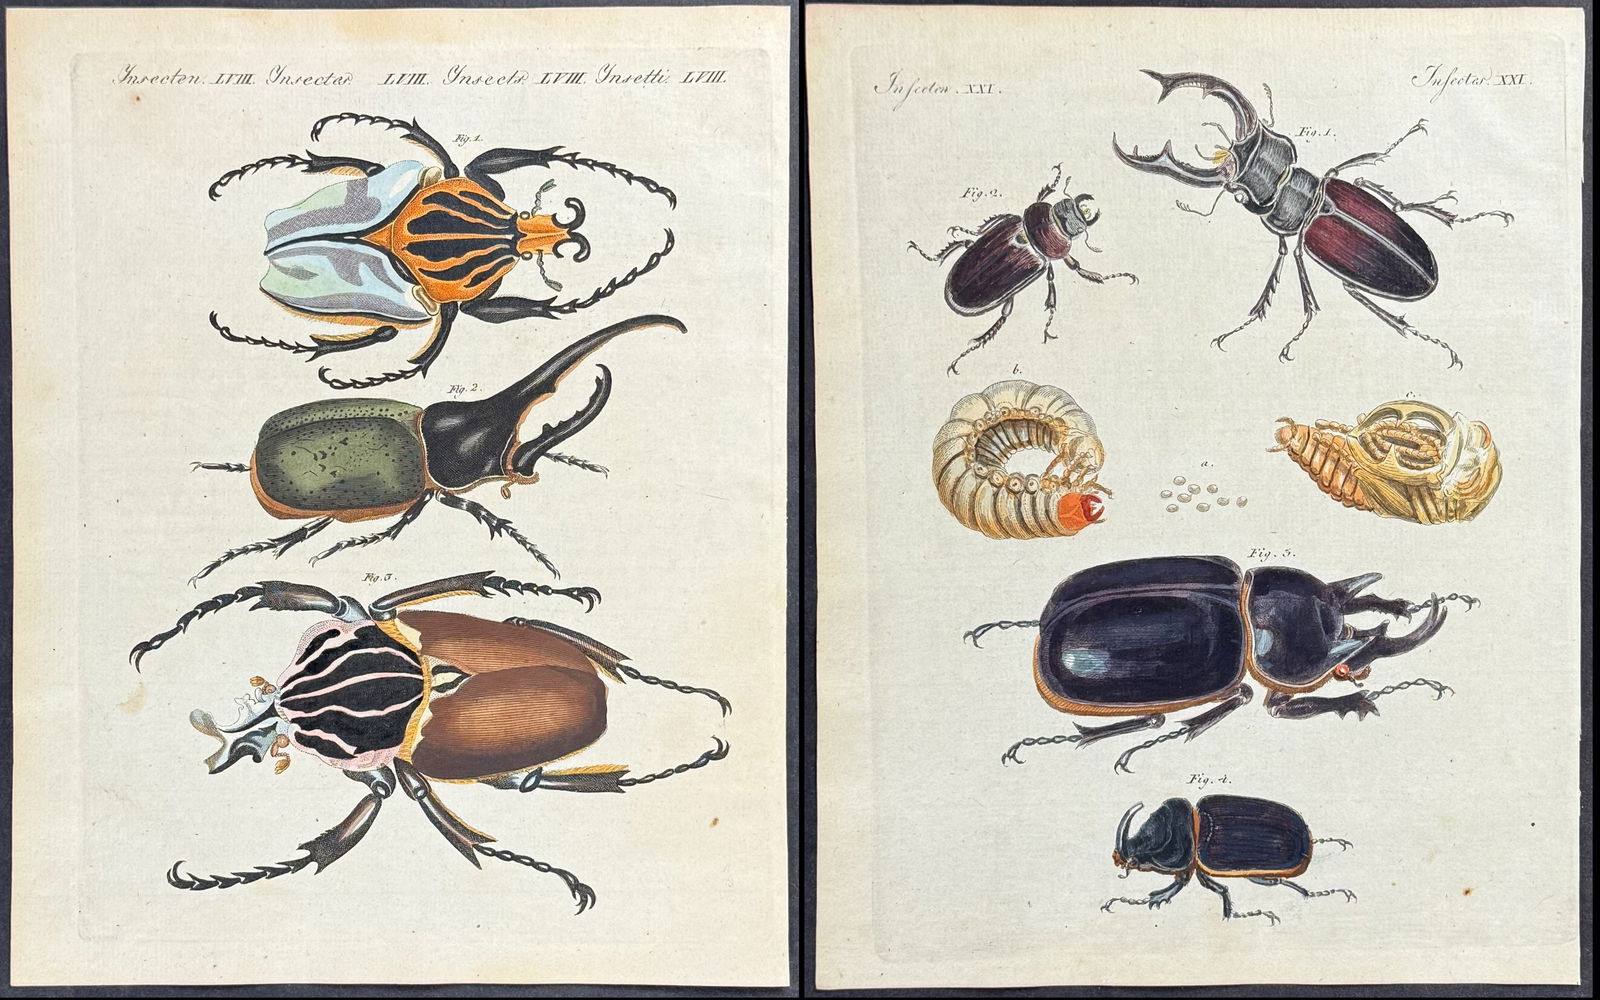 Insecten. LVIII. Insectes LVIII. Insects LVIII. Insetti. LVIII.
Fig. 1.
Fig. 2.
Fig. 3.
Insecten. XXI.
Insectes. XXI.
Fig. 1.
Fig. 2.
b.
c.
a.
Fig. 3.
Fig. 4.